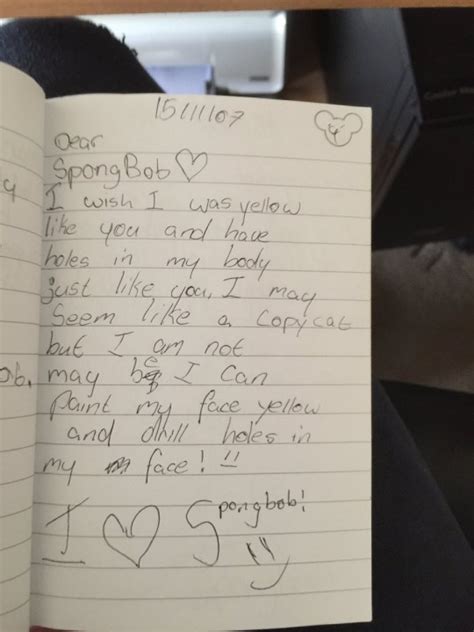 15/11/07
Dear
SpongBob ♡
I wish I was yellow
like you and have
holes in my body
just like you, I may
Seem like a copycat
but I am not
may be I can
paint my face yellow
and drill holes in
my face! !!
I ♡ Spongbob!